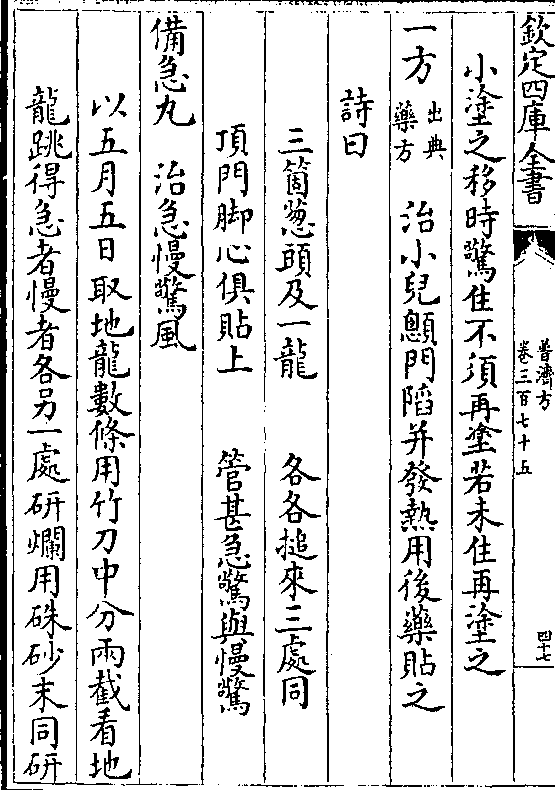 欽定四庫全書
普濟方
卷三百七十五
四十七
小塗之移時驚住不須再塗若未住再塗之
一方出典藥方 治小兒顖門陷并發熱用後藥貼之
詩曰
三箇葱頭及一龍 各各搥來三處同
頂門脚心俱貼上 管甚急驚與慢驚
備急丸 治急慢驚風
以五月五日取地龍數條用竹刀中分兩截看地
龍跳得急者慢者各另一處研爛用硃砂末同研